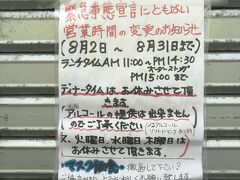 緊急事態宣言にともない
営業時間の変更のお知らせ
(8月2日～8月31日まで)
ランチタイムAM11:00～PM14:30
ラストオーダー
PM15:00まで
ディナータイムは、お休みさせて頂
きます
アルコールの提供は出来ません
のでご了承ください
ノンアルコール
ソフトドリンクあり
又、火曜日、水曜日、木曜日は
お休みさせて頂きます。
マスク
お願い致します